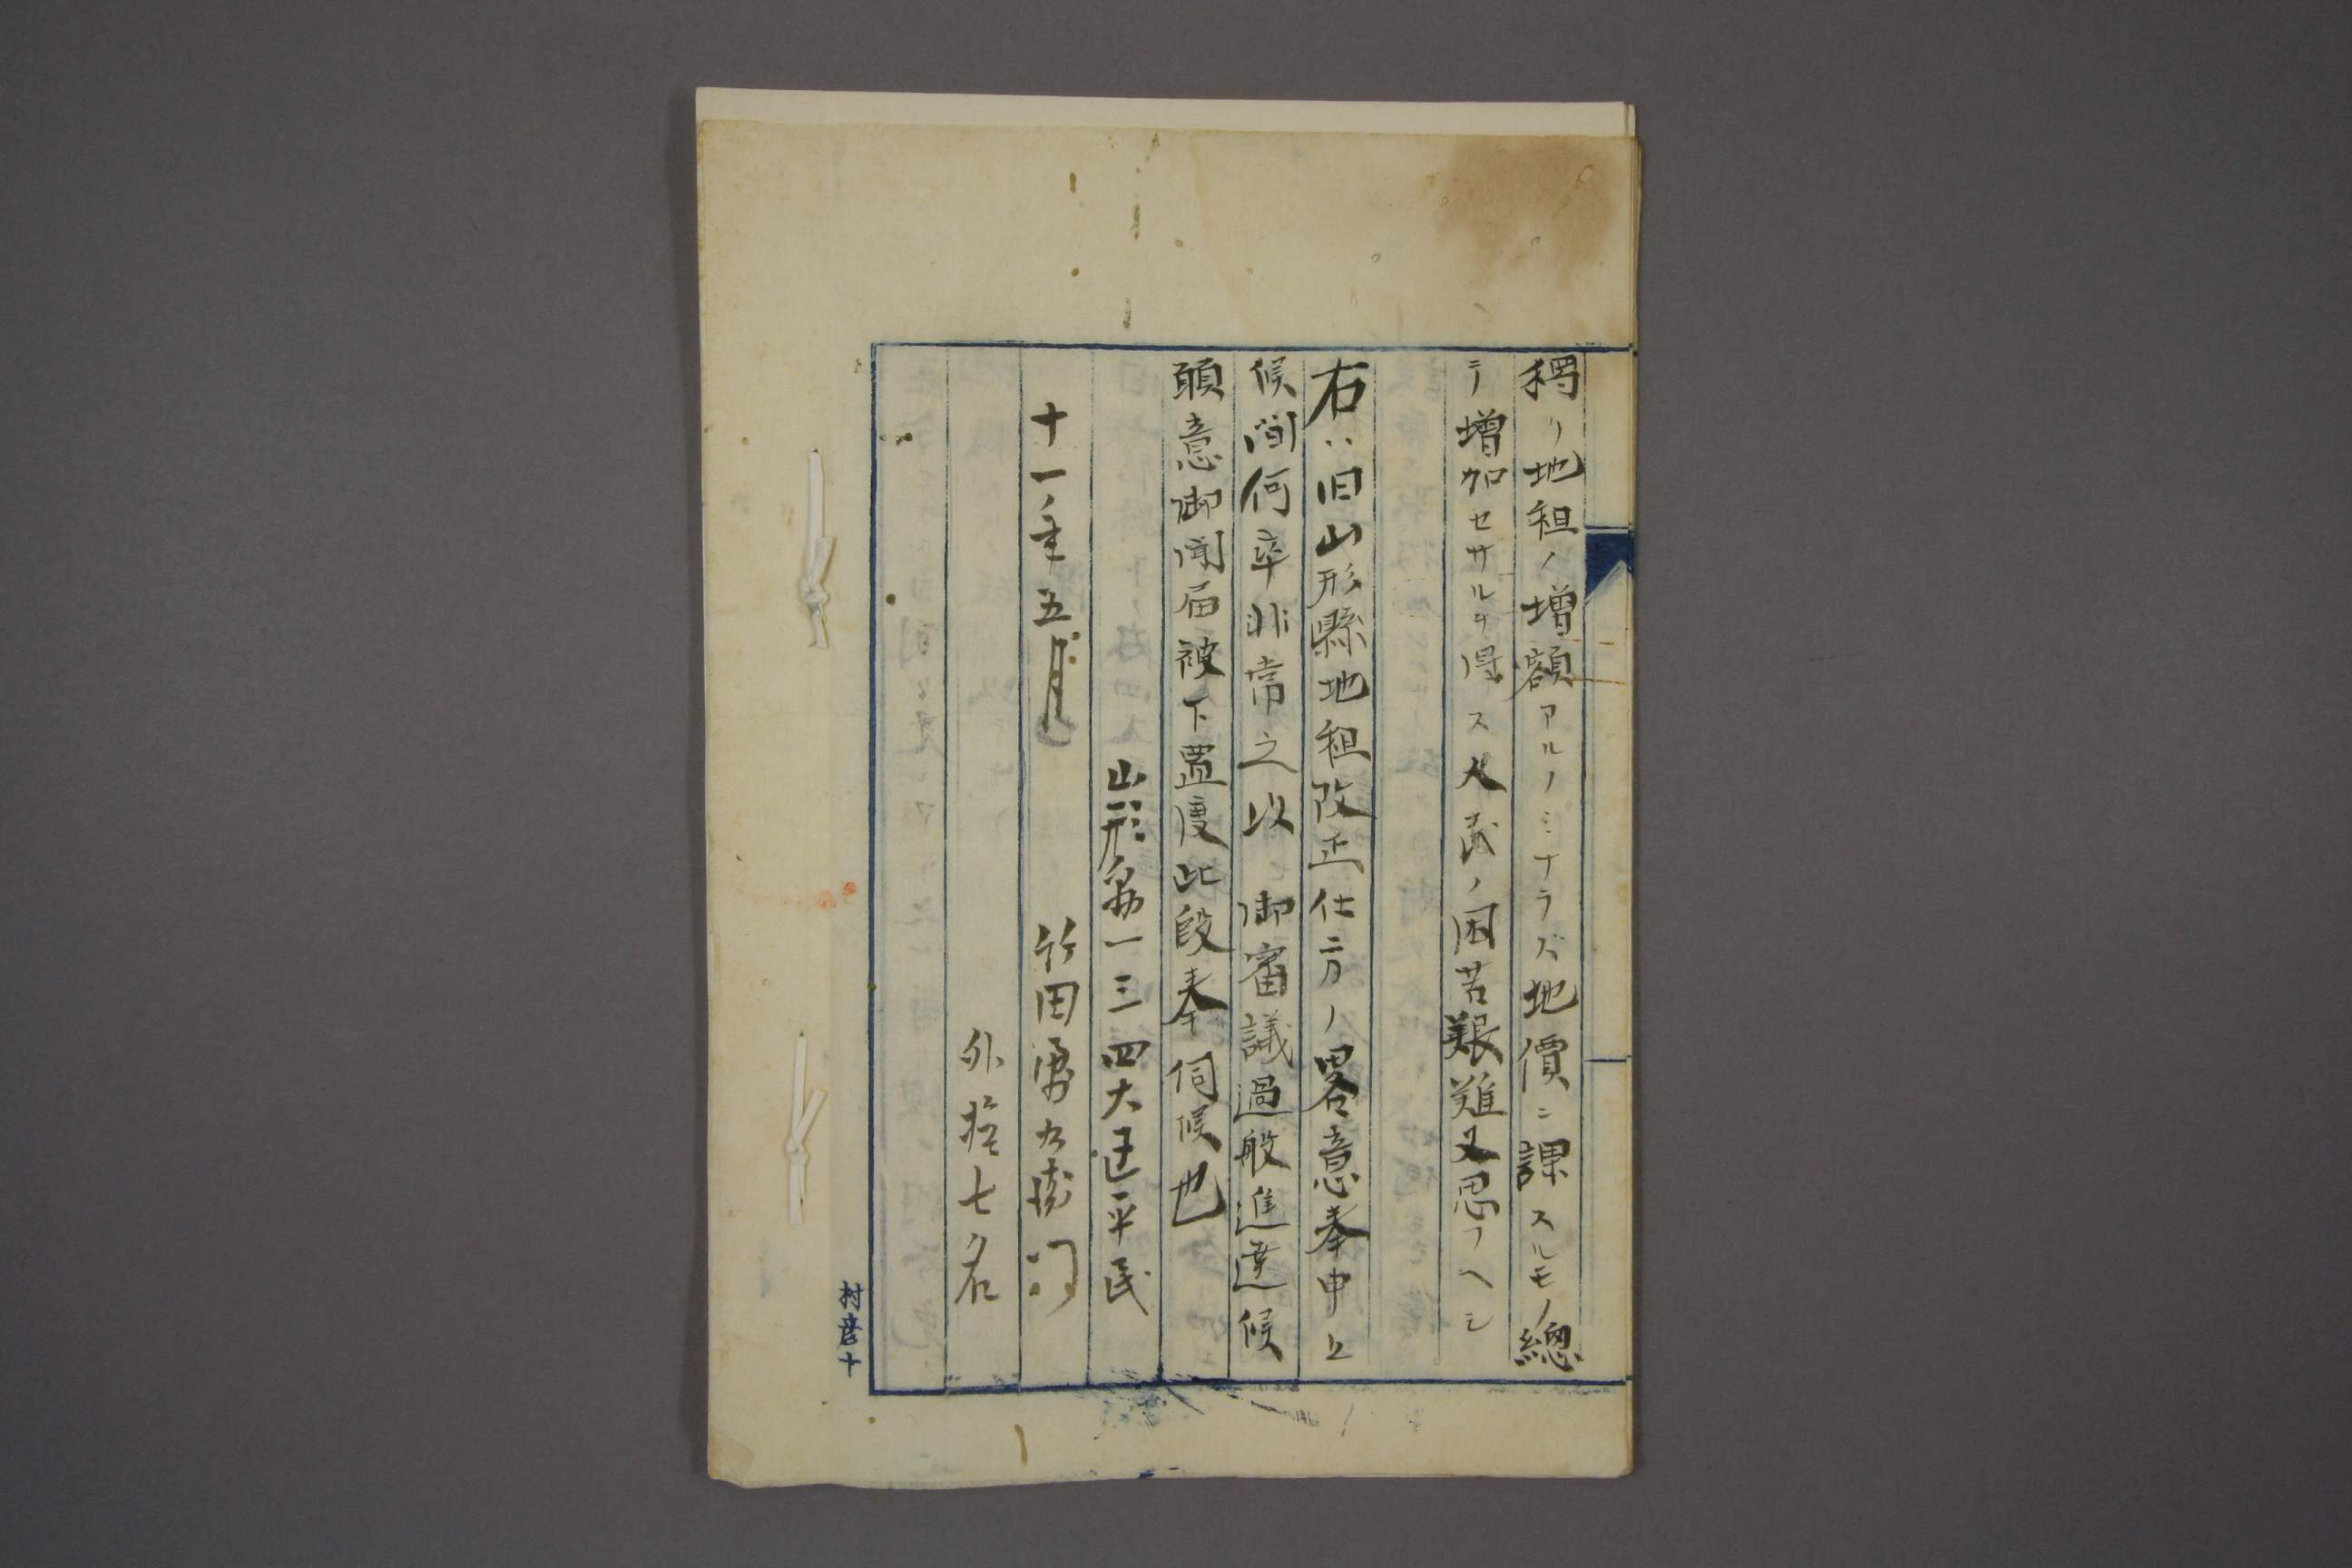 獨リ地租ノ増額アルノミナラズ地價ニ課スルモノ總
テ増加セサルヲ得ス人民ノ困苦艱難又思フヘシ
右ハ旧山形縣地租改正仕方ノ畧意奉申上
候間何卒非常之以 御審議過般進達候
願意御聞届被下置度此段奉伺候也
山形縣一三四大区平民
十一年五月 竹田勇右衛門
外拾七名
村彦十